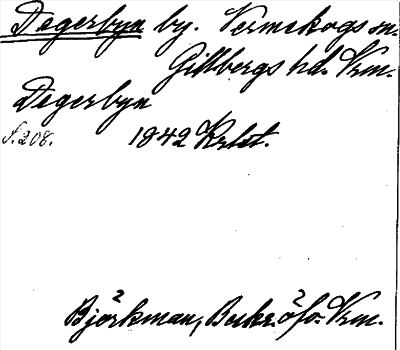 Degerbyn by. Värmskogs sn.
Gillbergs hd. Vrm.
Degerbyn
S. 208. 1842 Krlst.
Björkman, Beskr. öfv. Vrm.